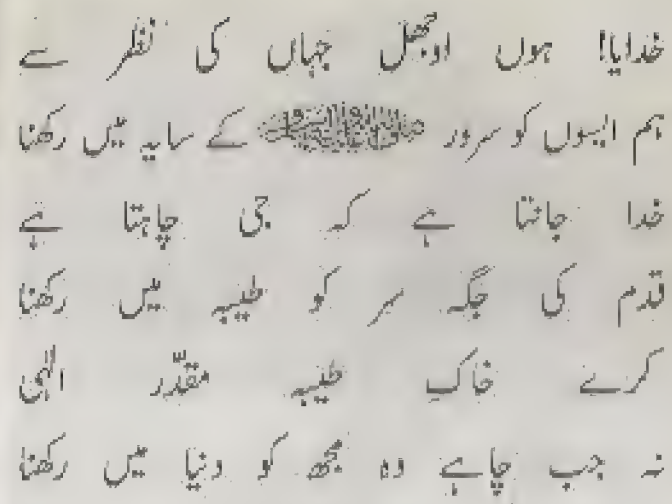 خدایا! ہوں اوجھل جہاں کی نظر سے
ہم ایسوں کو سرور ﷺ کے سایہ میں رکھنا
خدا جانتا ہے کہ جی چاہتا ہے
قدم کی جگہ سر کو طیبہ میں رکھنا
کرے خاکِ طیبہ مقدّر الٰہی
نہ جب چاہے وہ مجھ کو دنیا میں رکھنا